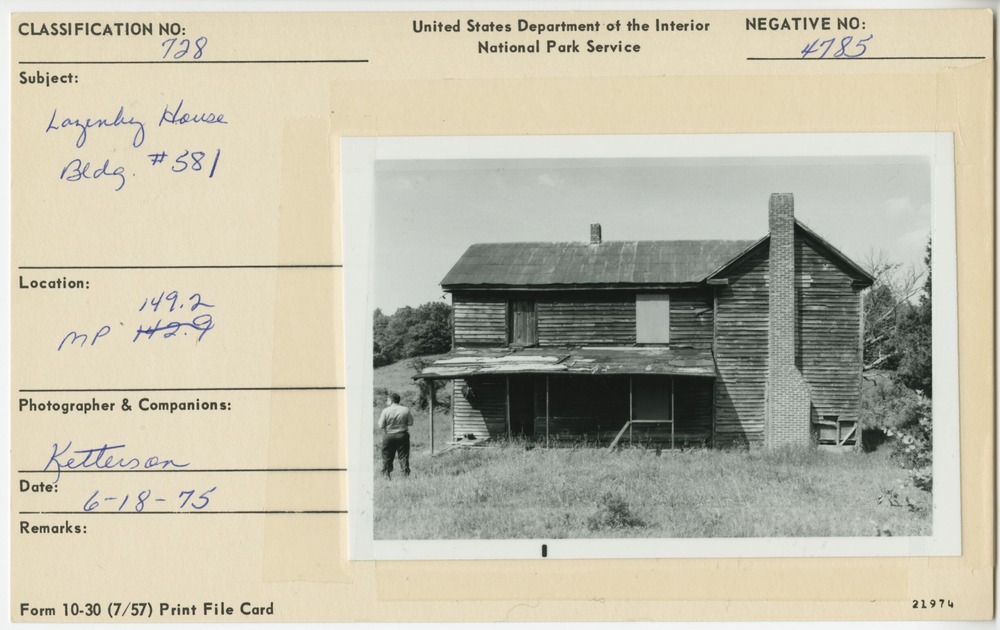 CLASSIFICATION NO: 728
United States Department of the Interior
National Park Service
NEGATIVE NO: 4785
Subject:
Lazenby House
Bldg. #581
Location:
149.2
MP 142.9
Photographer & Companions:
Ketterson
Date: 6-18-75
Remarks:
Form 10-30 (7/57) Print File Card
21974